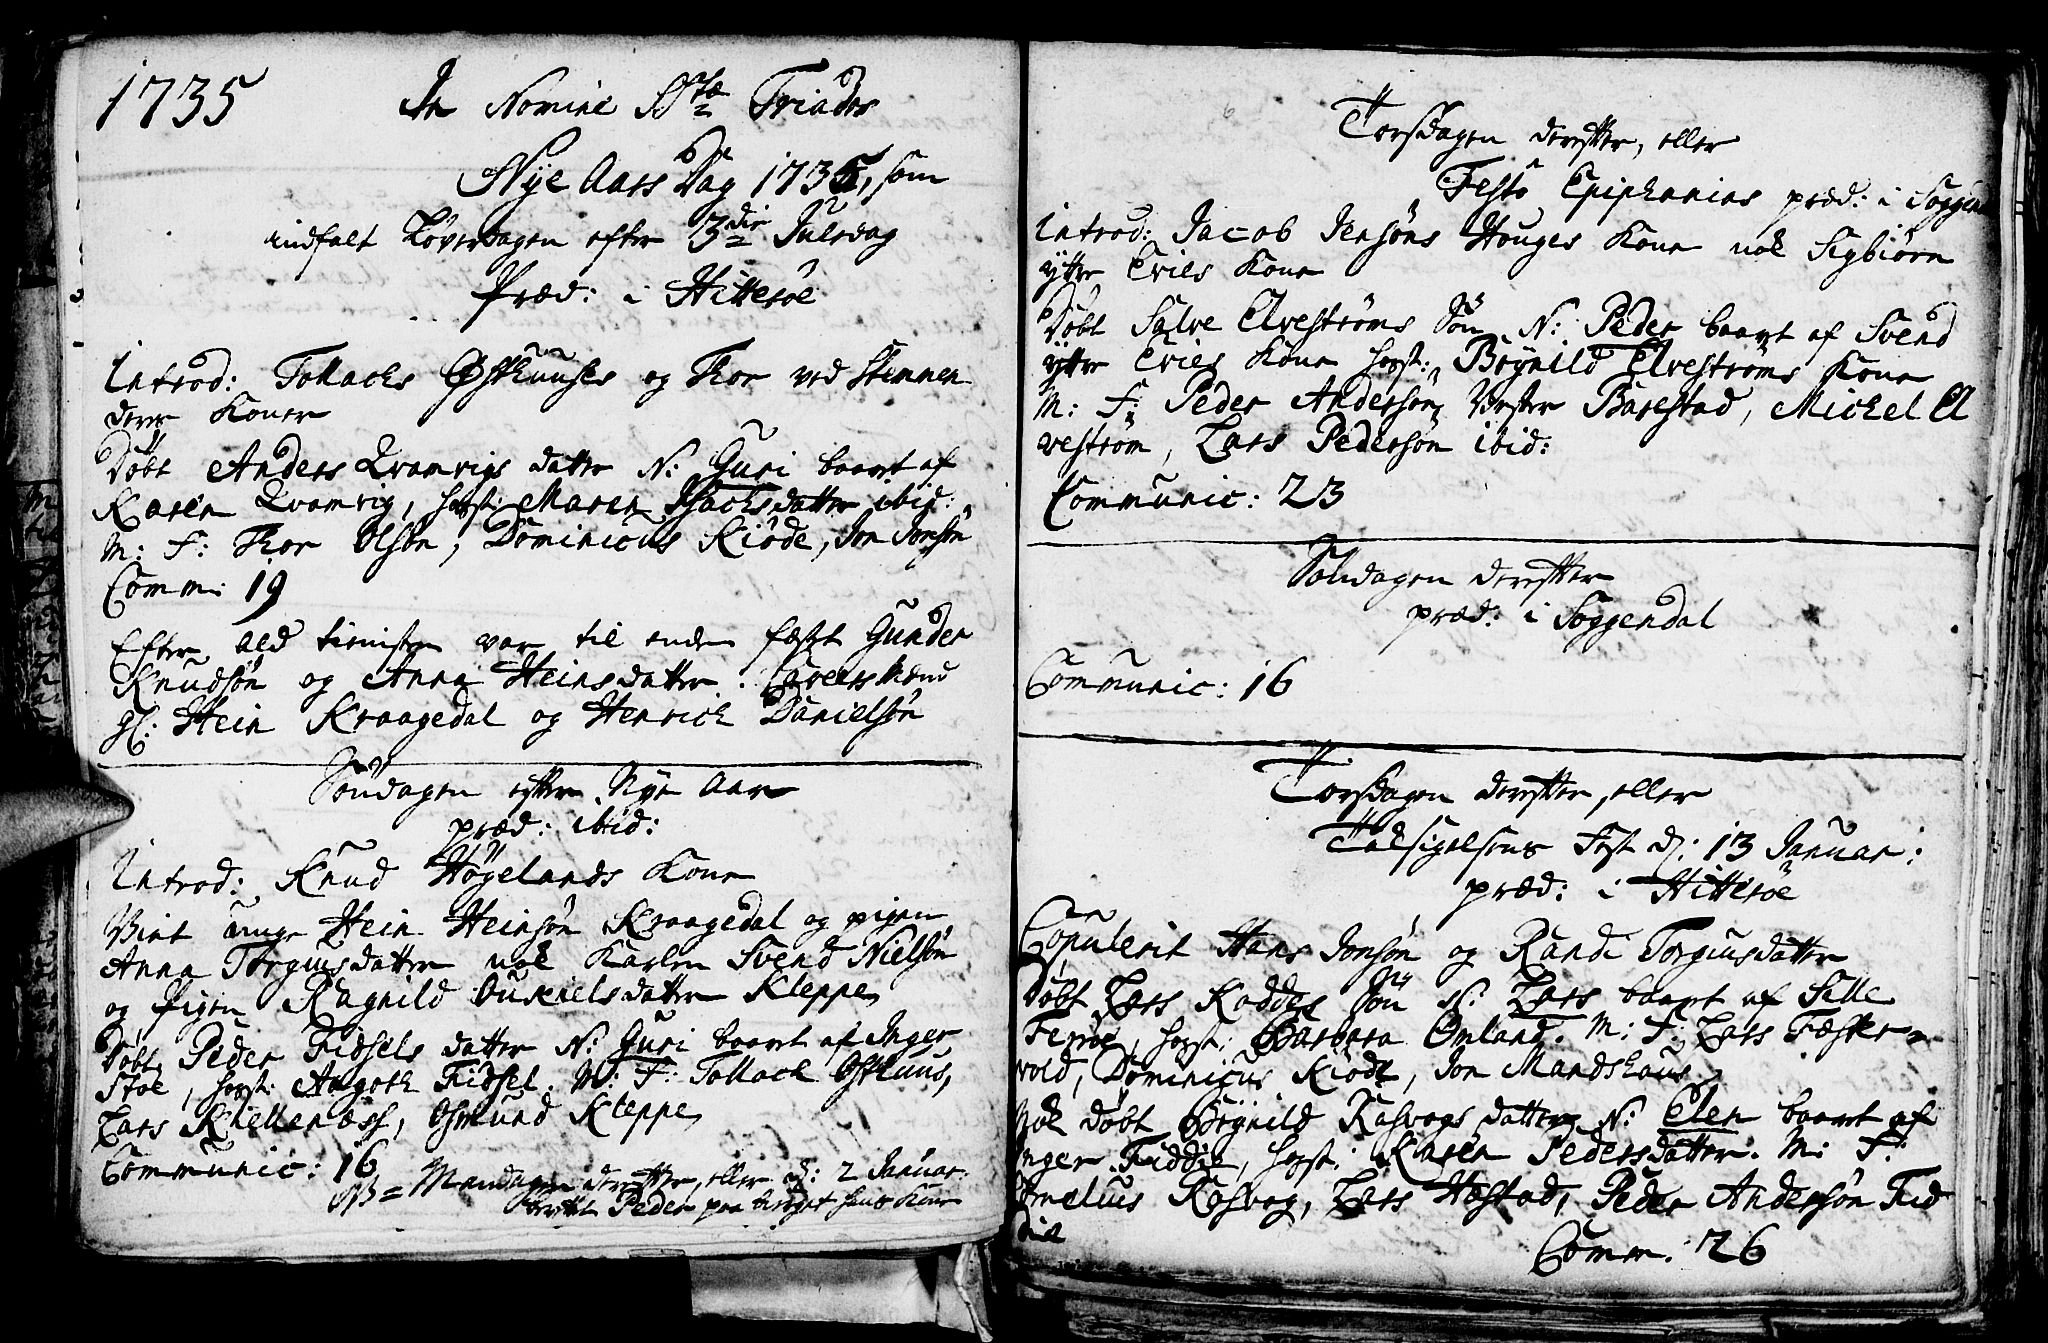 1735
In Nomine SStæ Triados
Nye Aars Dag 1735, som
indfalt Løverdagen efter 3die Juledag
Præd: i Hitterøe
Introd: Tollachs Østhuuses og Thor ved Stemmen
deres Koner
Døbt Anders Qvamvigs datter N: Guri baaret af
Karen Qvamvig, hosst: Maren Isachsdatter ibid:
M: F: Thor Olsøn, Dominicus Kiøde, Jon Jonsøn
Comm: 19
Efter all tienisten var til ende fæstet Gunder
Knudsøn og Anna Heinsdatter. Caversmænd
gl: Hein Kraagedal og Henrich Danielsøn
Søndagen efter Nye Aar
præd: ibid:
Introd: Knud Høgelands Kone
Viet unge Hein Heinsøn Kraagedal og pigen
Anna Torgiusdatter nok Karlen Svend Nielsøn
og Pigen Ragnild Ouskielsdatter Kleppe
Døbt Peder Fidsels datter N: Guri baaret af Inger
Stoe, hosst: Angoth Fidsel. M: F: Tollach Østhuus,
Lars Kiellenæss, Osmund Kleppe
Communic: 16
NB= Mandagen derefter, eller d: 2 Januar:
Peder paa hans Kone
Torsdagen derefter, eller
Festo Epiphanias præd: i Soggend
Introd: Jacob Jensøns Houges Kone nok Sigbiørn
ytter Eries Kone
Døbt Salve Elvestrøms Søn N: Peder baaret af Svend
ytter Eries Kone hosst: Bøgnild Elvestrøms Kone
M: F: Peder Andersøn Vester Barestad, Michel El
vestrøm, Lars Pedersøn ibid:
Communic: 23
Søndagen derefter
præd: i Soggendal
Communic: 16
Torsdagen derefter, eller
Taksigelsens Fest d: 13 Januar:
præd: i Hitterøe
Copulerit Hans Jonsøn og Randi Torgiusdatter
Døbt Lars Roddes Søn N: Lars baaret af Sille
hosst: Barbara Omland. M: F: Lars Fæster-
vold, Dominicus Kiøde, Jon Mandshaus
Nok døbt Bøgnild Rasvogs datter N: Elen baaret af
Inger Fiddie, hosst: Karen Pedersdatter. M: F:
Omelius Rasvog, Lars Hæstad, Peder Andersøn Fid
die
Comm: 26